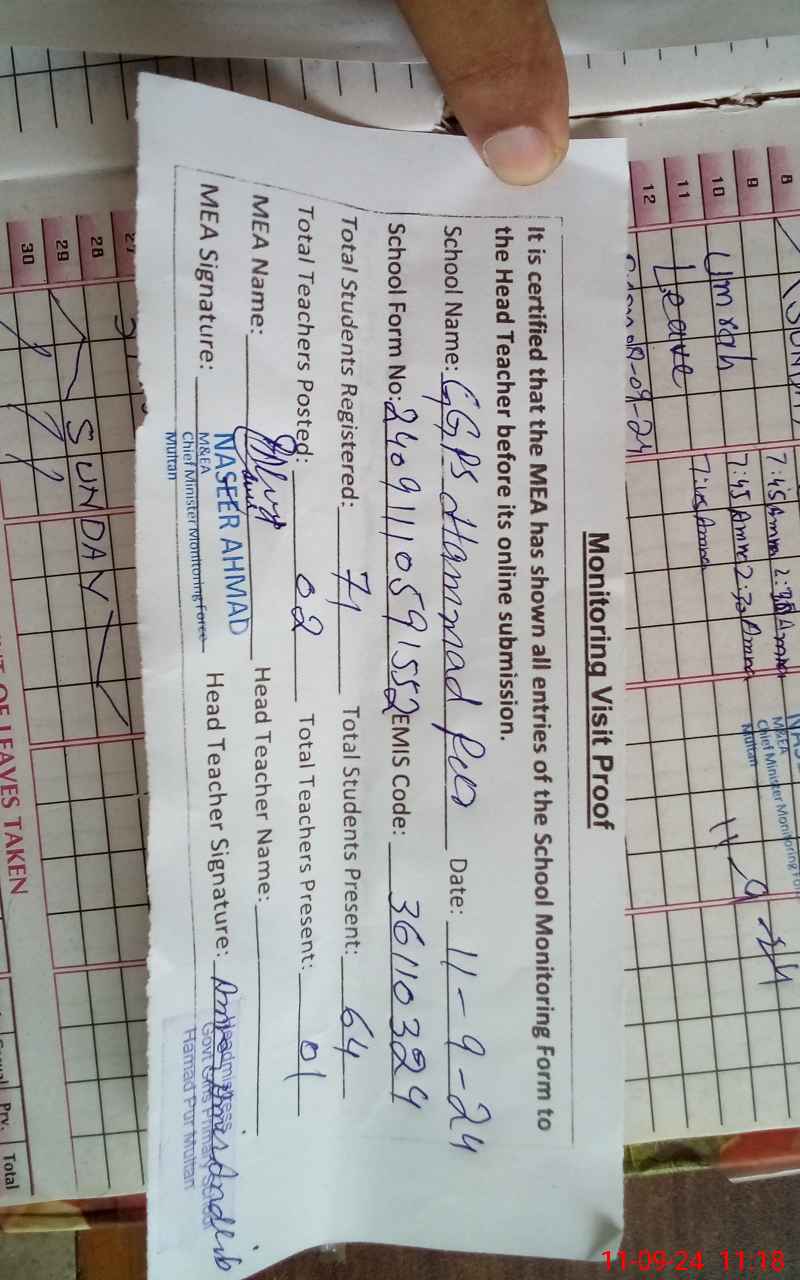 Monitoring Visit Proof
It is certified that the MEA has shown all entries of the School Monitoring Form to
the Head Teacher before its online submission.
School Name: GGPS Hammad Pur Date: 11-9-24
School Form No: 24091110591552 EMIS Code: 36110324
Total Students Registered: 71 Total Students Present: 64
Total Teachers Posted: 02 Total Teachers Present: 01
MEA Name: Head Teacher Name:
MEA Signature: Head Teacher Signature:
NASEER AHMAD
M&EA
Chief Minister Monitoring Force
Multan
Headmistress
Govt Girls Primary School
Hamad Pur Multan
8 SUNDAY
9 7:45 2:30
10 Umrah 7:45 2:30
11 Leave 7:45
12
M&EA
Chief Minister Monitoring For
Multan
11-9-24
27
28 SUNDAY
29
30
OF LEAVES TAKEN
Casual Prv. Total
11-09-24 11:18